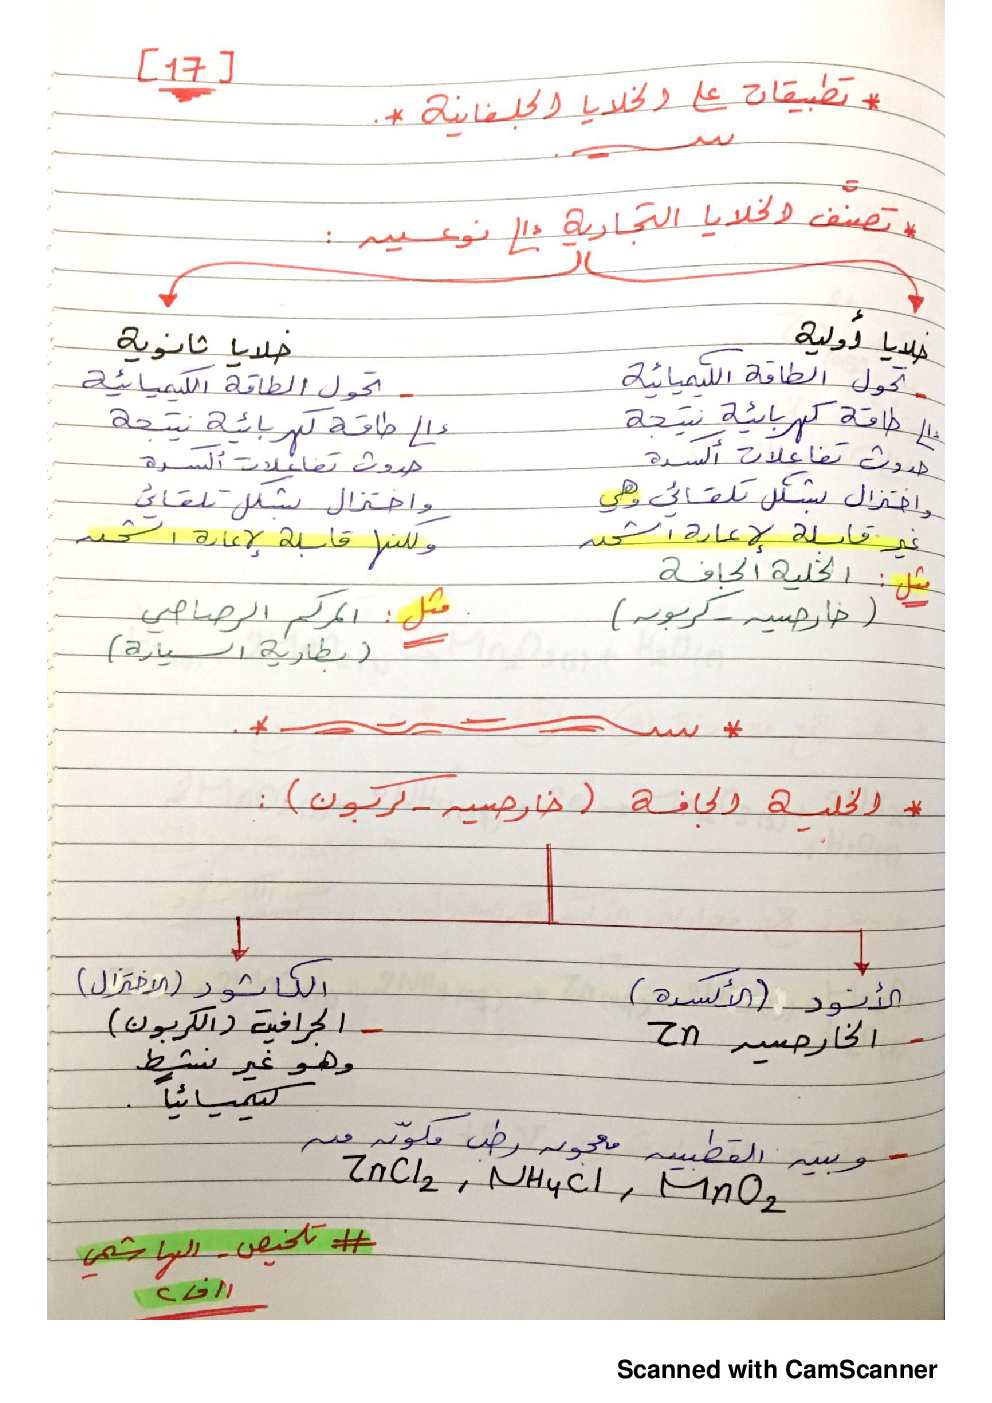 [17]
* تطبيقات على الخلايا الجلفانية *.
* تُصنَّف الخلايا التجارية إلى نوعين :
خلايا أولية
- تحول الطاقة الكيميائية
إلى طاقة كهربائية نتيجة
حدوث تفاعلات أكسدة
واختزال بشكل تلقائي وهي
غير قابلة لإعادة الشحن
مثل : الخلية الجافة
(خارصين - كربون)
خلايا ثانوية
- تحول الطاقة الكيميائية
إلى طاقة كهربائية نتيجة
حدوث تفاعلات أكسدة
واختزال بشكل تلقائي
ولكنها قابلة لإعادة الشحن
مثل : المركم الرصاصي
(بطارية السيارة)
* الخلية الجافة (خارصين - كربون) :
الأنود (الأكسدة)
- الخارصين Zn
الكاثود (الاختزال)
- الجرافيت (الكربون)
وهو غير نشط
كيميائياً .
- وبين القطبين معجون رطب مكوّن من
ZnCl2 , NH4Cl , MnO2
# تلخيص - الهاشمي
Scanned with CamScanner